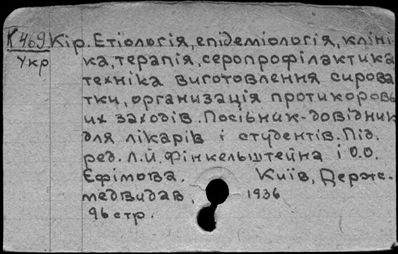 К 469 Кір. Етіологія, епідеміологія, кліні
Укр ка, терапія, серопрофілактика
техніка виготовлення сирова
тки, организація протикоровь
их заходів. Посібник-довідник
для лікарів і студентів. Під
ред. Л.Й. Фінкельштейна і О.О.
Єфімова. Київ, Держ-
медвидав, 1936
96 стр.